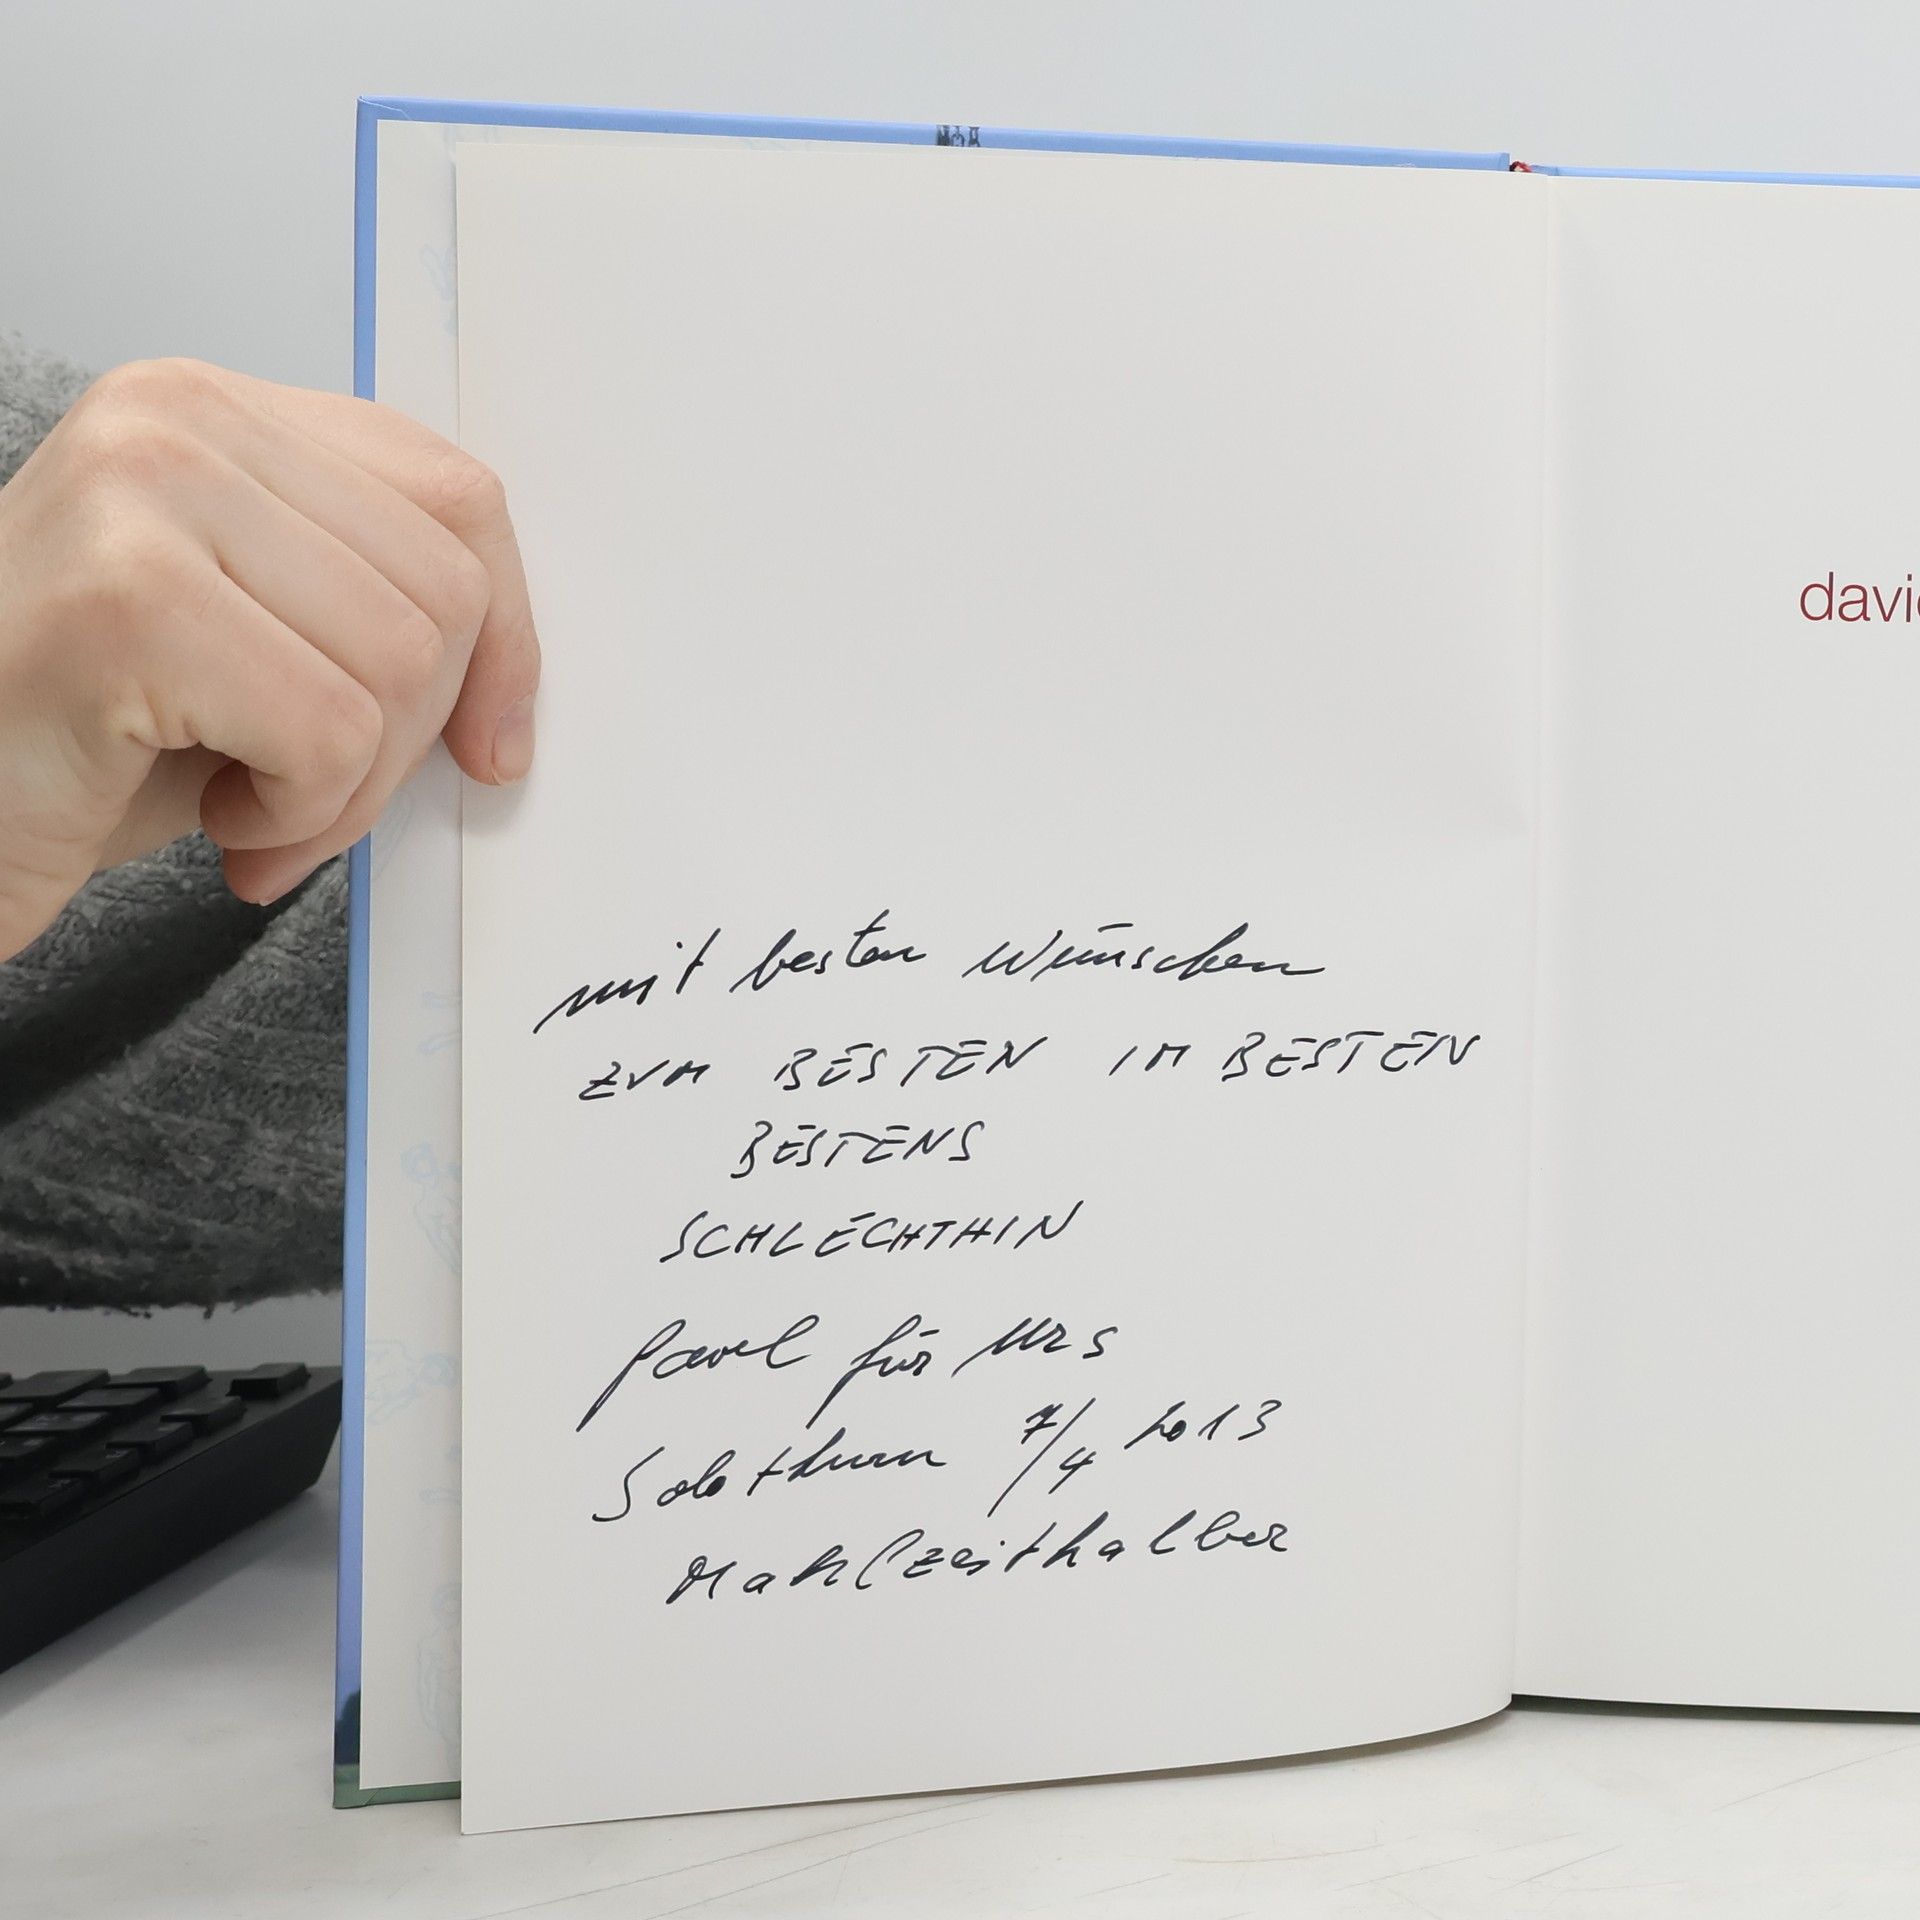 mit besten Wünschen
ZUM BESTEN IM BESTEN
BESTENS
SCHLECHTHIN
Pavel für Urs
Solothurn 7/4 2013
Mahlzeithalber
davi